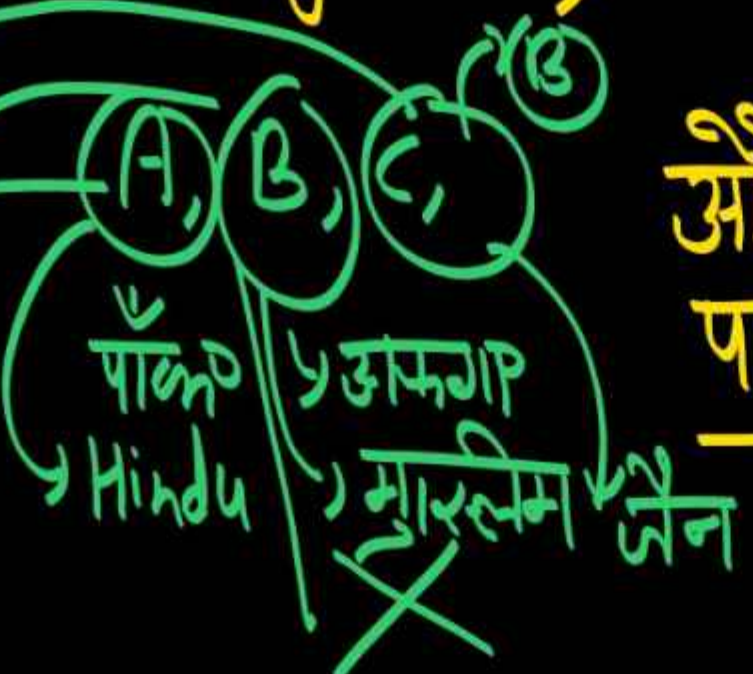 B
A, B, C,
अ
पाक० अफगा०
प
Hindu मुस्लिम जैन